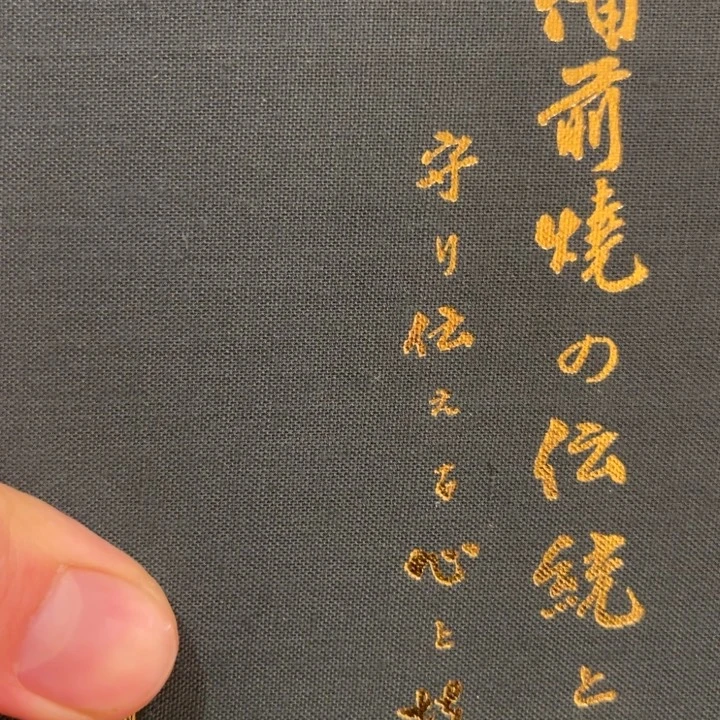 備前焼の伝統と
守り伝える心と